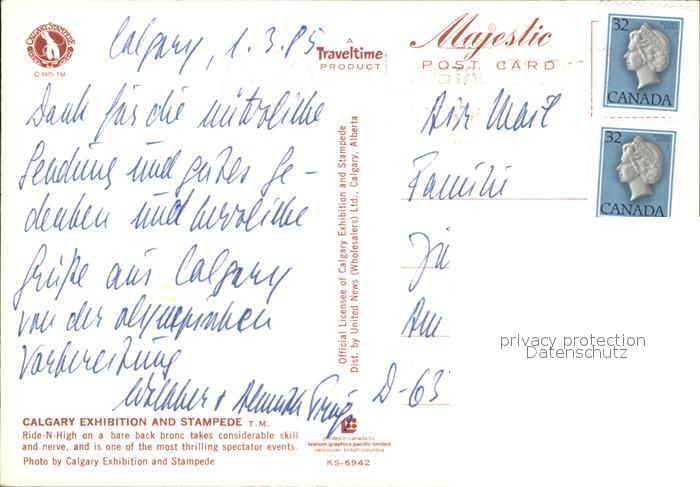 CALGARY STAMPEDE
© 1975 TM
Calgary, 1.3.85
Dank für die nützliche
Sendung und gutes Ge-
denken und herzliche
Grüße aus Calgary
von der olympischen
Vorbereitung
Walther + Almuth
CALGARY EXHIBITION AND STAMPEDE T.M.
Ride-N-High on a bare back bronc takes considerable skill
and nerve, and is one of the most thrilling spectator events.
Photo by Calgary Exhibition and Stampede
A
Traveltime
PRODUCT
Official Licensee of Calgary Exhibition and Stampede
Dist. by United News (Wholesalers) Ltd., Calgary, Alberta
printed in canada by
lawson graphics pacific limited
vancouver british columbia
KS-6942
Majestic
POST CARD
Air Mail
Familie
Jü
Am
D-63
32
CANADA
32
CANADA
privacy protection
Datenschutz